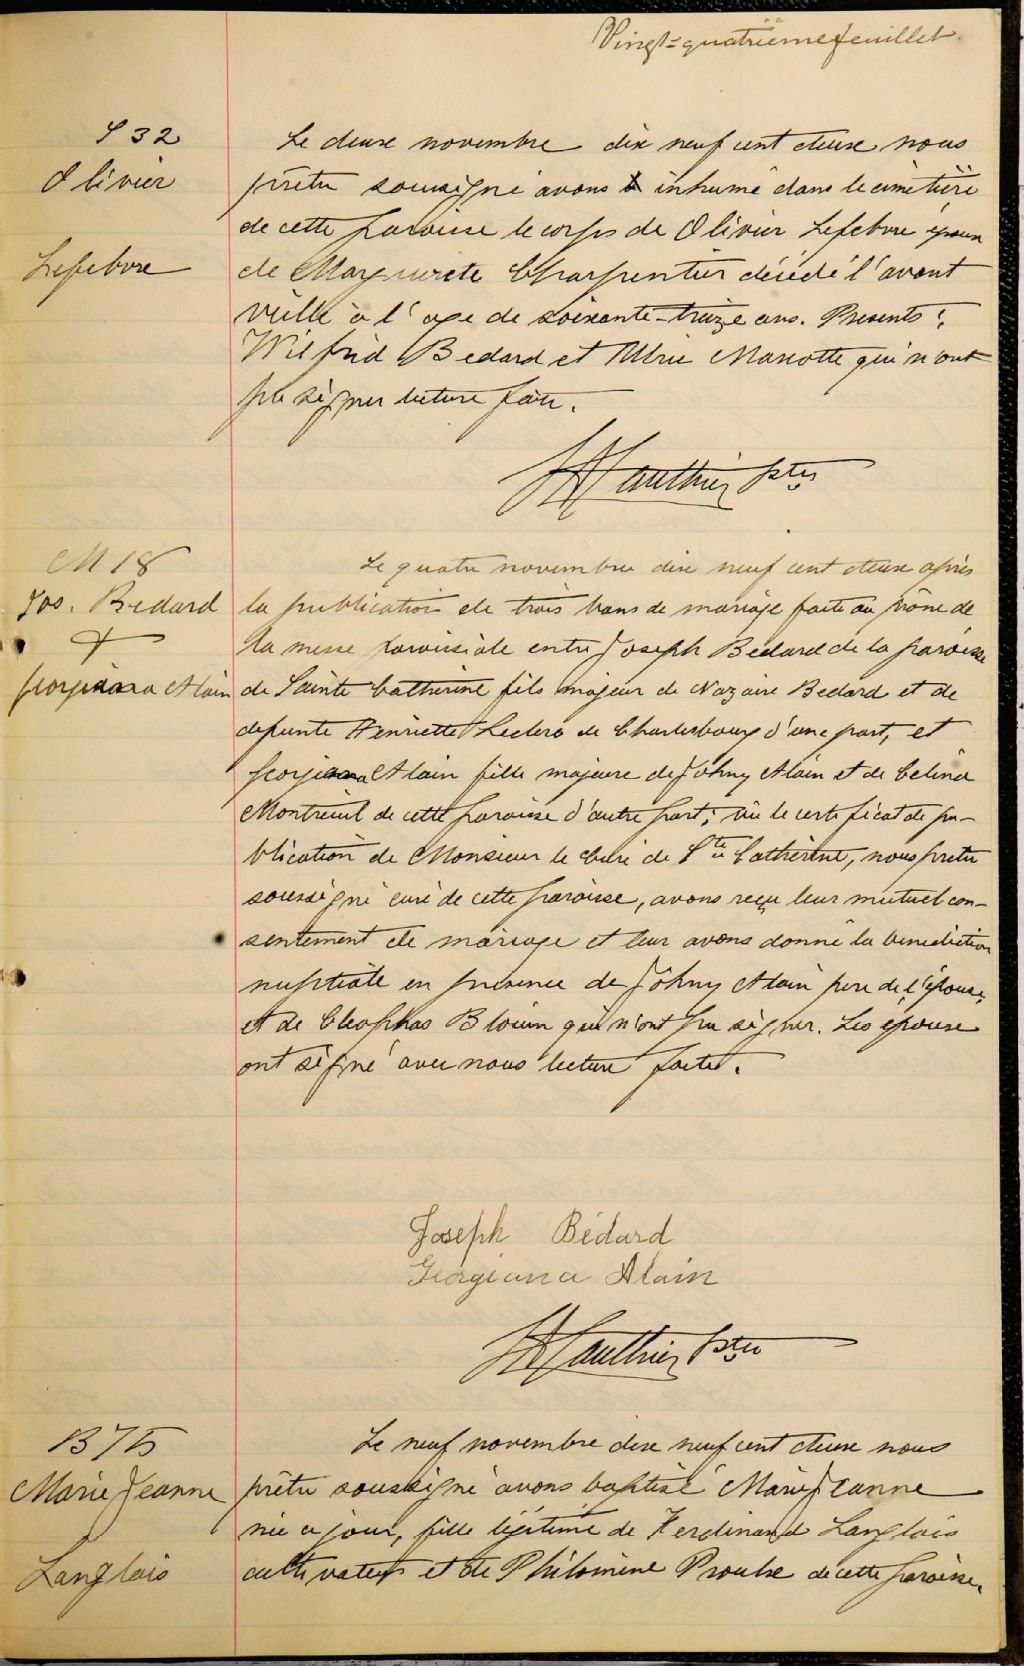 Vingt-quatrième feuillet.
S 32
Olivier
Lefebvre
Le deux novembre dix neuf cent deux nous
prêtre soussigné avons inhumé dans le cimetière
de cette paroisse le corps de Olivier Lefebvre époux
de Marguerete Charpentier décédé l'avant
veille à l'age de soixante-treize ans. Presents:
Wilfrid Bedard et Ulric Marcotte qui n'ont
pu signer lecture faite.
Gauthier ptre
M 18
Jos. Bedard
+
Georgiana Alain
Le quatre novembre dix neuf cent deux après
la publication de trois bans de mariage faite au prône de
la messe paroissiale entre Joseph Bedard de la paroisse
de Sainte Catherine fils majeur de Nazaire Bedard et de
defunte Henriette Leclerc de Charlesbourg d'une part, et
Georgiana Alain fille majeure de Johny Alain et de Celina
Montreuil de cette paroisse d'autre part; vu le certificat de pu-
blication de Monsieur le Curé de Ste Catherine, nous pretre
soussigné curé de cette paroisse, avons reçu leur mutuel con-
sentement de mariage et leur avons donné la benediction
nuptiale en présence de Johny Alain pere de l'épouse,
et de Cleophas Blouin qui n'ont pu signer. Les epoux
ont signé avec nous lecture faite.
Joseph Bédard
Georgiana Alain
Gauthier Ptre
B 75
Marie Jeanne
Langlais
Le neuf novembre dix neuf cent deux nous
prêtre soussigné avons baptisé Marie Jeanne
née ce jour, fille légitime de Ferdinand Langlais
cultivateur et de Philomène Proulx de cette paroisse.